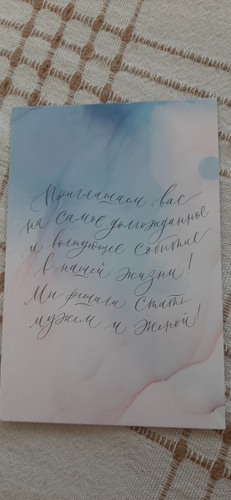 Приглашаем вас
на самое долгожданное
и волнующее событие
в нашей жизни!
Мы решили стать
мужем и женой!